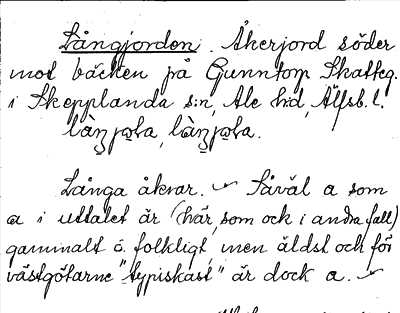 Långjorden. Åkerjord söder
mot bäcken på Gunntorp Skatteg.
i Skepplanda s:n, Ale h:d, Älfsb. l.
Långa åkrar. Såväl a som
a i uttalet är (här, som ock i andra fall)
gammalt o folkligt, men äldst och för
västgötarne "typiskast" är dock a.